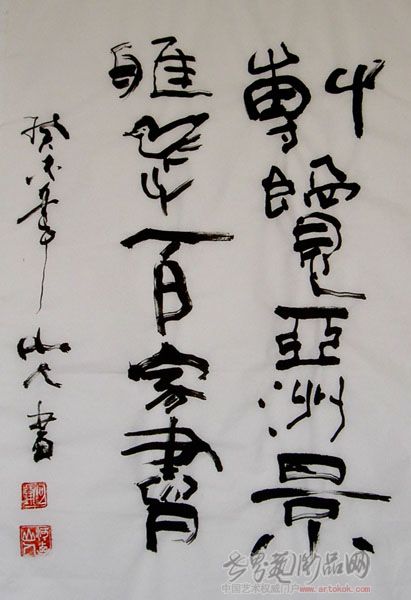 博覽亞洲景
雅集百家書
癸未年 山人書
世界艺术品网
中国艺术权威门户www.artokok.com